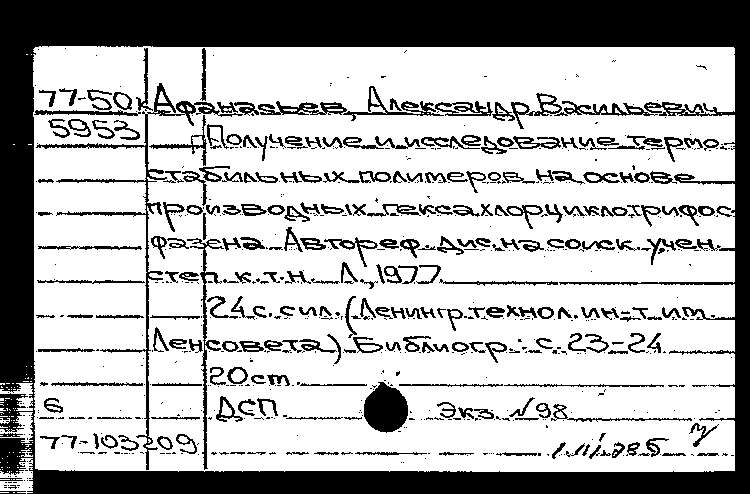 77-50к Афанасьев, Александр Васильевич
5953 Получение и исследование термо-
стабильных полимеров на основе
производных гексахлорциклотрифос-
фазена. Автореф. дис. на соиск. учен.
степ. к.т.н. Л., 1977.
24 с. с ил. (Ленингр. технол. ин-т им.
Ленсовета) Библиогр.: с. 23-24
20 cm.
6 ДСП. Экз. №98
77-103209